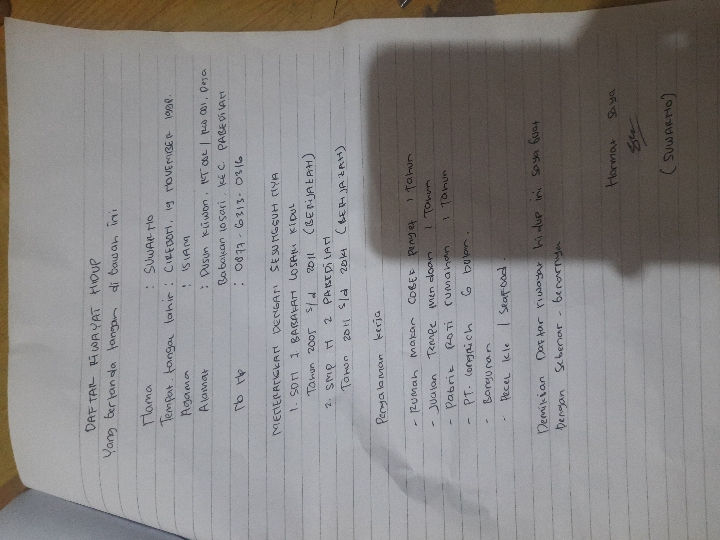 DAFTAR RIWAYAT HIDUP
Yang bertanda tangan di bawah ini
Nama : SUWARNO
Tempat tanggal lahir : CIREBON, 19 NOVEMBER 1998.
Agama : ISLAM
Alamat : Dusun Kliwon, RT 002 / RW 001, Desa
Babakan losari, KEC. PABEDILAN
No Hp : 0877-6313-0316
MENERANGKAN DENGAN SESUNGGUHNYA
1. SDN 1 BABAKAN LOSARI KIDUL
Tahun 2005 s/d 2011 (BERIJAZAH)
2. SMP N 2 PABEDILAN
Tahun 2011 s/d 2014 (BERIJAZAH)
Pengalaman kerja
- Rumah makan COBEK Penyet 1 Tahun
- Jualan Tempe mendoan 1 Tahun
- Pabrik Roti rumahan 1 Tahun
- PT. Longrich 6 bulan.
- Bangunan
- Pecel lele / Seafood.
Demikian Daftar riwayat hidup ini saya buat
Dengan sebenar-benarnya
Hormat saya
(SUWARNO)